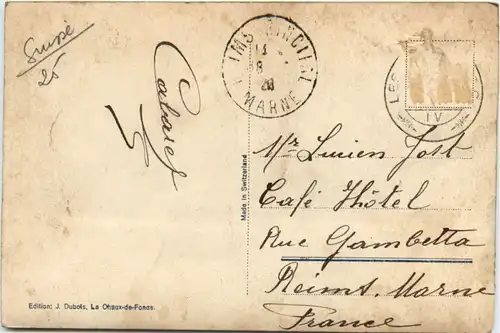 Suisse
25
Cabaret
REIMS PRINCIPAL
13
8
MARNE
LES
IV
Made in Switzerland
Mr Lucien Jost
Café Hôtel
Rue Gambetta
Reims. Marne
France
Edition: J. Dubois, La Chaux-de-Fonds.